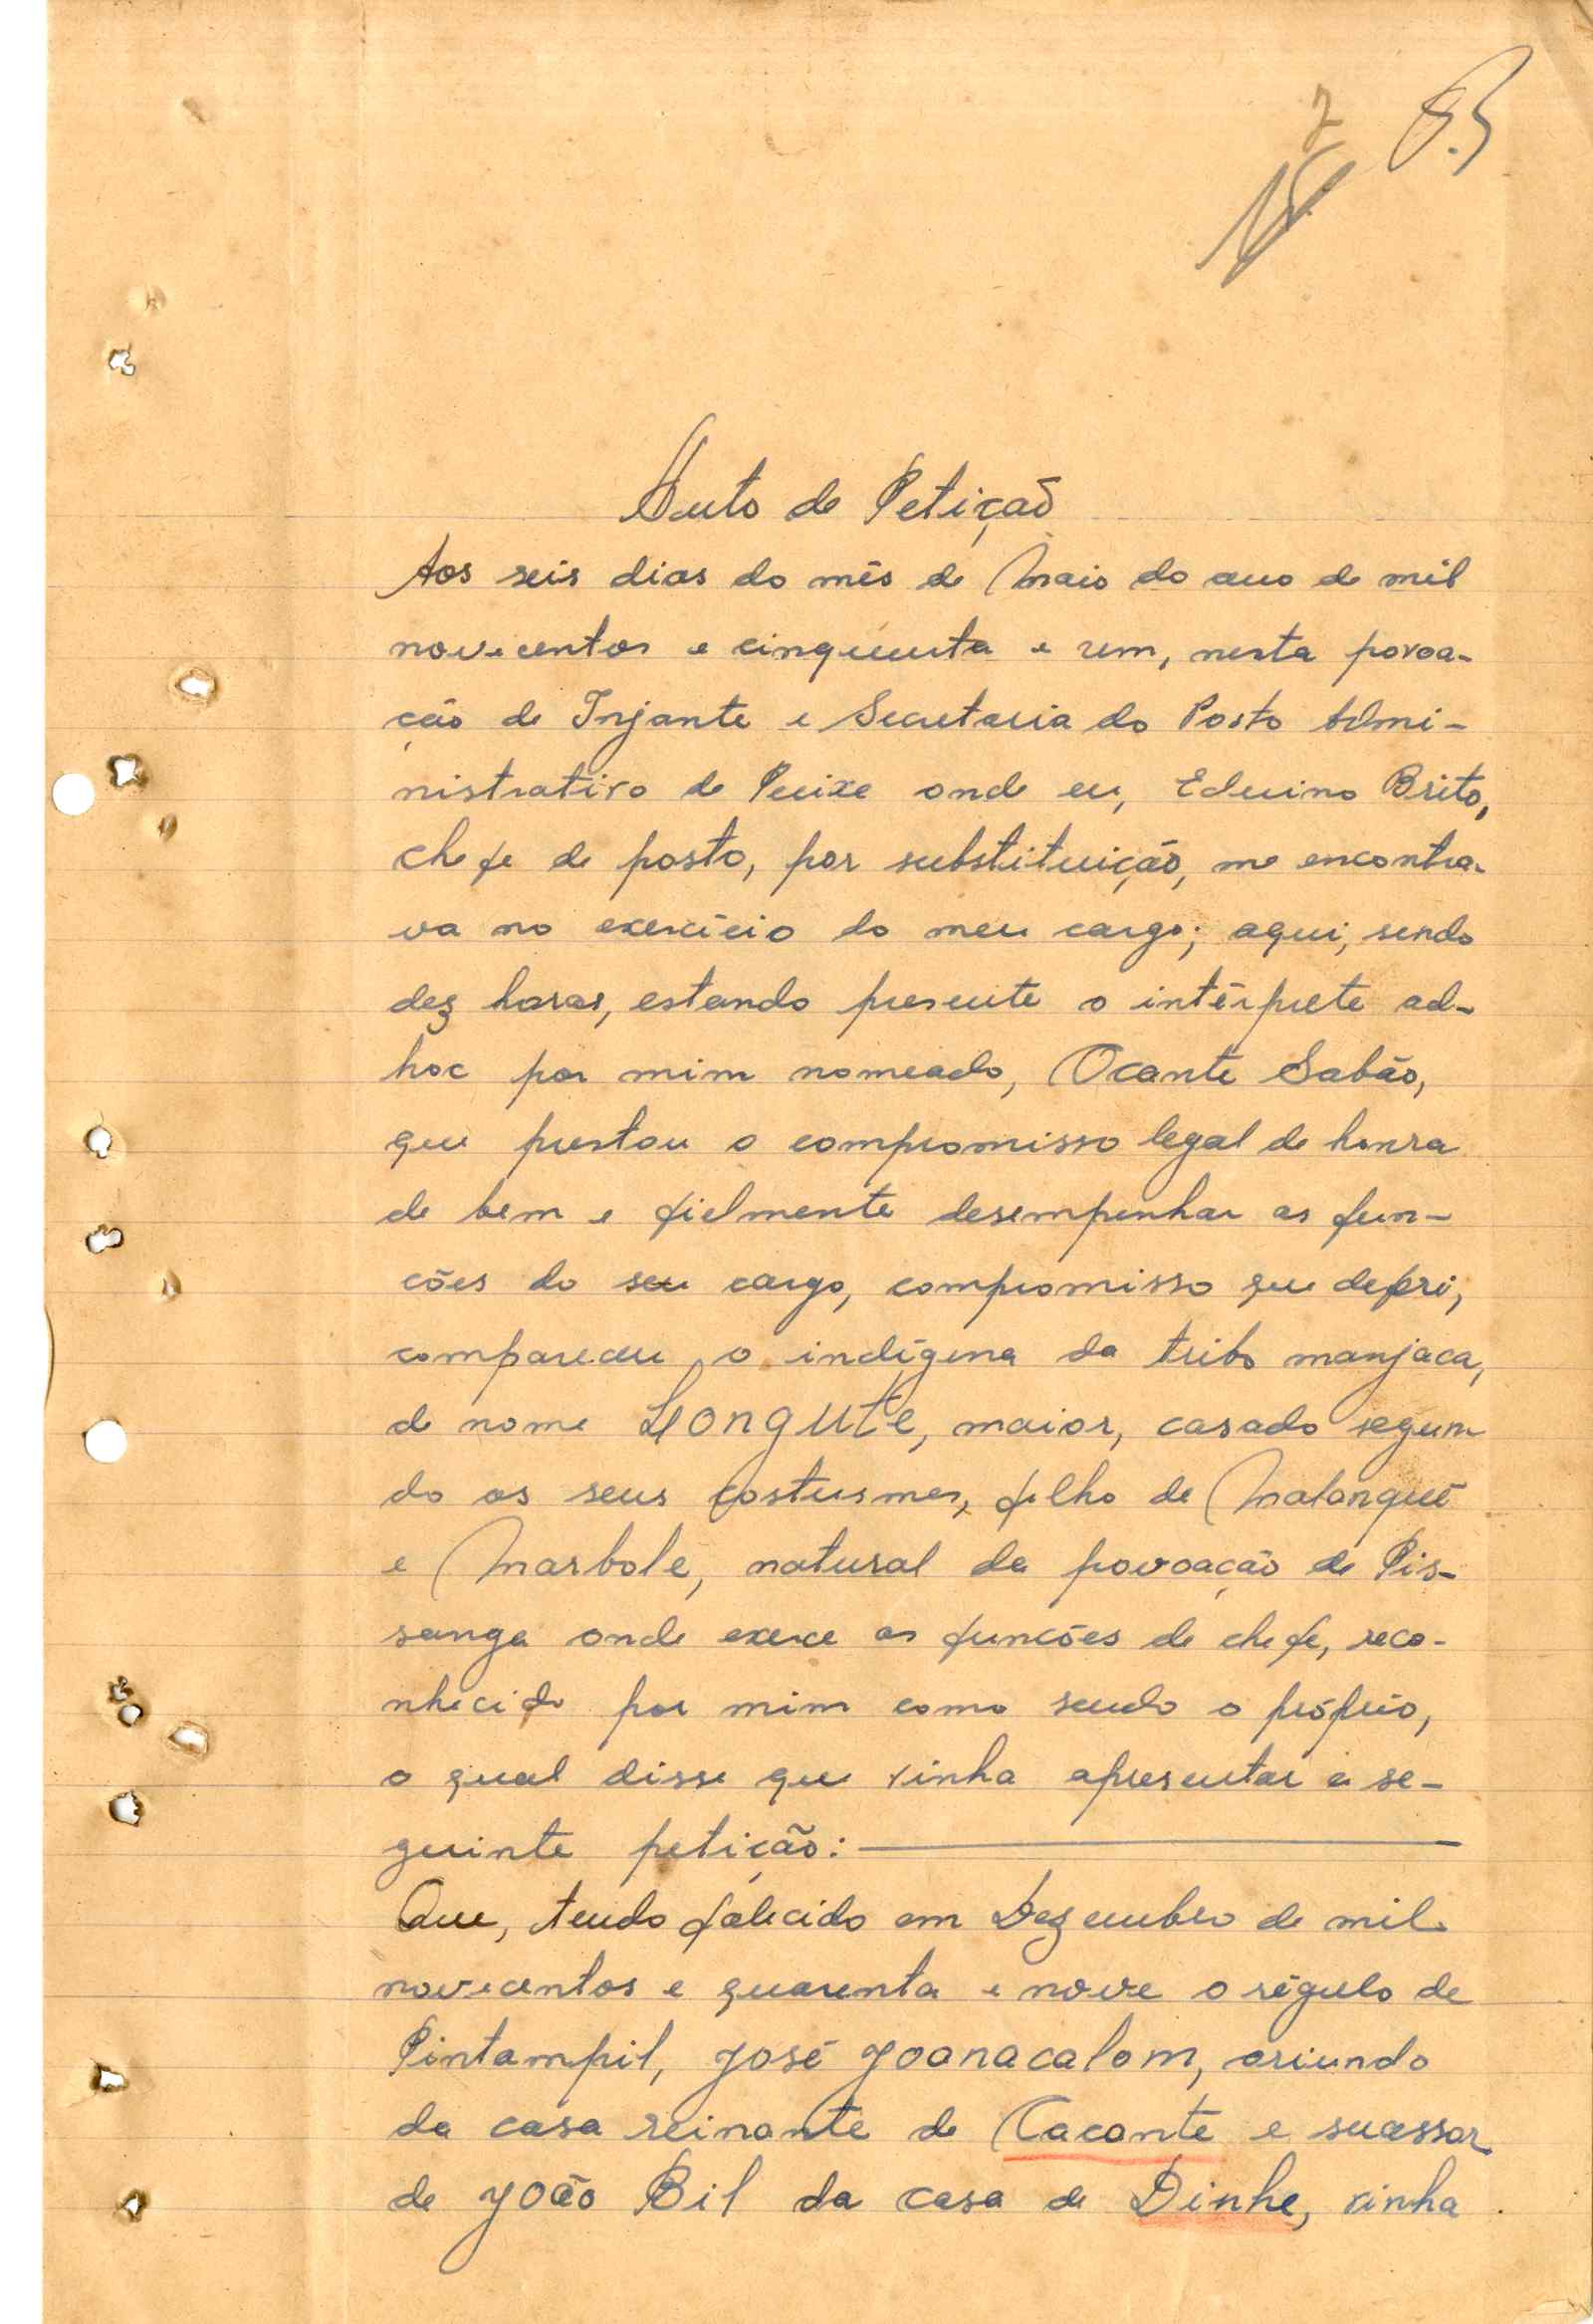 7
Auto de Petição
Aos seis dias do mês de Maio do ano de mil
novecentos e cinquenta e um, nesta povoa-
ção de Injante e Secretaria do Posto Admi-
nistrativo de Peixe onde eu, Eduino Brito,
chefe de posto, por substituição, me encontra-
va no exercício do meu cargo; aqui, sendo
dez horas, estando presente o intérprete ad-
hoc por mim nomeado, Ocante Sabão,
que prestou o compromisso legal de honra
de bem e fielmente desempenhar as fun-
ções do seu cargo, compromisso que deferi,
compareceu o indígena da tribo manjaca,
de nome Longute, maior, casado segun
do os seus costusmes, filho de Malongué
e Marbole, natural da povoação de Pis-
sanga onde exerce as funcões de chefe, reco-
nhecido por mim como sendo o próprio,
o qual disse que vinha apresentar a se-
guinte petição:
Que, tendo falecido em Dezembro de mil
novecentos e quarenta e nove o régulo de
Pintampil, José Joanacalom, oriundo
da casa reinante de Cacante e sucessor
de João Bil da casa de Dinhe, vinha